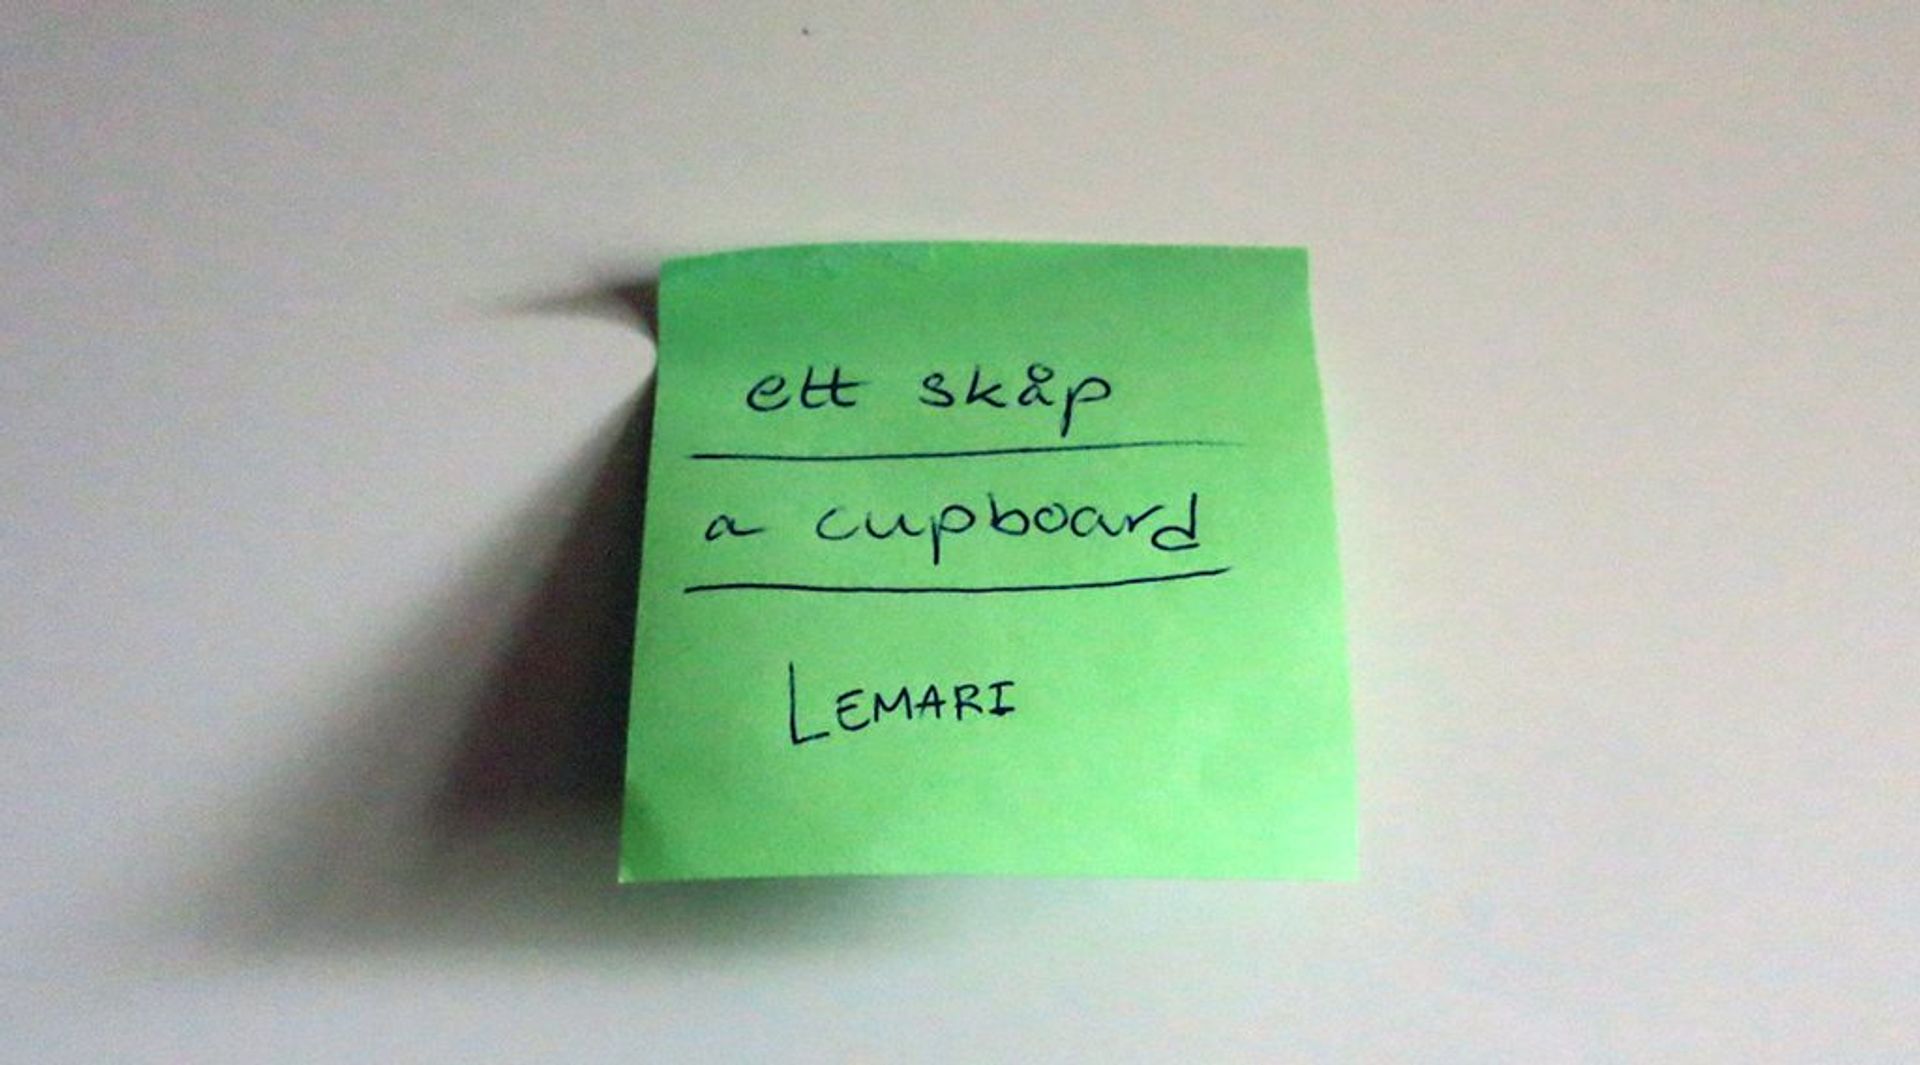 ett skåp
a cupboard
LEMARI